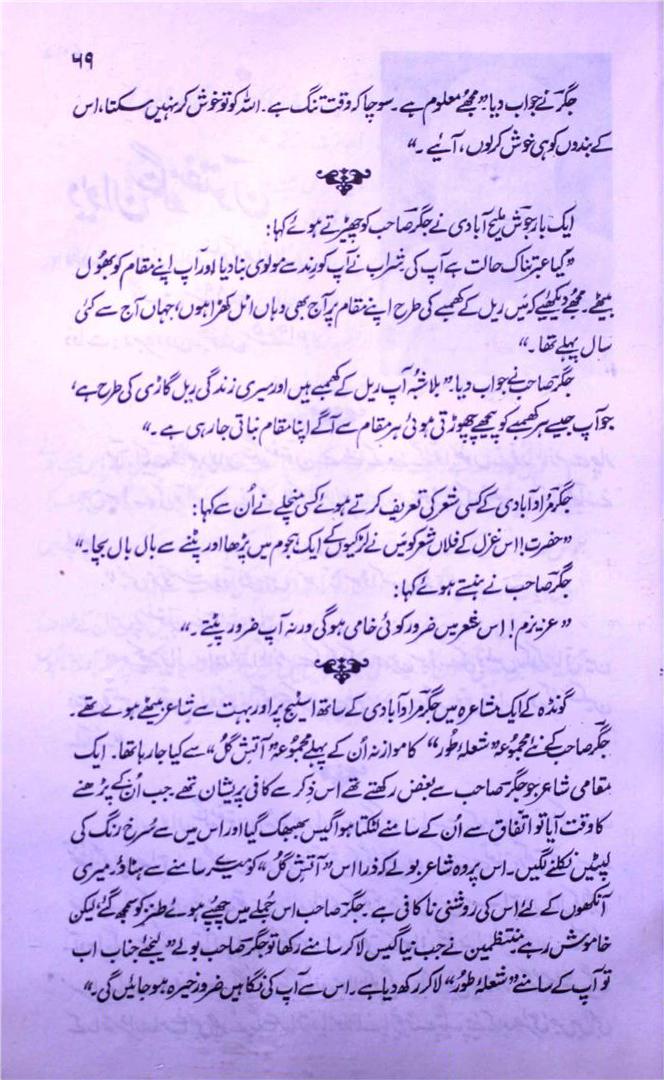 ۶۹
جگرؔ نے جواب دیا۔”مجھے معلوم ہے۔ سوچا کہ وقت تنگ ہے۔ اللہ کو تو خوش کر نہیں سکتا، اس
کے بندوں کو ہی خوش کر لوں، آئیے۔“
ایک بار جوشؔ ملیح آبادی نے جگرؔ صاحب کو چھیڑتے ہوئے کہا:
”کیا عبرتناک حالت ہے آپ کی شراب نے آپ کو رِند سے مولوی بنا دیا اور آپ اپنے مقام کو بھول
بیٹھے۔ مجھے دیکھئیے کہ میَں ریل کے کھمبے کی طرح اپنے مقام پر آج بھی وہاں اٹل کھڑا ہوں، جہاں آج سے کئی
سال پہلے تھا۔“
جگرؔ صاحب نے جواب دیا:”بلا شبہ آپ ریل کے کھمبے ہیں اور میری زندگی ریل گاڑی کی طرح ہے،
جو آپ جیسے ہر کھمبے کو پیچھے چھوڑتی ہوئی ہر مقام سے آگے اپنا مقام بناتی جا رہی ہے۔“
جگرؔ مُراد آبادی کے کسی شعر کی تعریف کرتے ہوئے کسی منچلے نے اُن سے کہا:
”حضرت! اس غزل کے فلاں شعر کو میَں نے لڑکیوں کے ایک ہجوم میں پڑھا اور پٹنے سے بال بال بچا۔“
جگرؔ صاحب نے ہنستے ہوئے کہا:
”عزیزم!! اس شعر میں ضرور کوئی خامی ہوگی ورنہ آپ ضرور پٹتے۔“
گونڈہ کے ایک مشاعرہ میں جگرؔ مراد آبادی کے ساتھ اسٹیج پر اور بہت سے شاعر بیٹھے ہوئے تھے۔
جگرؔ صاحب کے نئے مجموعہ ”شعلۂ طُور“ کا موازنہ اُن کے پہلے مجموعہ ”آتشِ گُل“ سے کیا جا رہا تھا۔ ایک
مقامی شاعر جو جگرؔ صاحب سے بغض رکھتے تھے اس ذکر سے کافی پریشان تھے جب اُن کے پڑھنے
کا وقت آیا تو اتفاق سے اُن کے سامنے لٹکتا ہوا گیس بھبھک گیا اور اس میں سے سُرخ رنگ کی
لپٹیں نکلنے لگیں۔ اس پر وہ شاعر بولے کہ ذرا اس ”آتشِ گُل“ کو میرے سامنے سے ہٹا دو۔ میری
آنکھوں کے لئے اس کی روشنی ناکافی ہے۔ جگرؔ صاحب اس جُملے میں چھپے ہوئے طنز کو سمجھ گئے لیکن
خاموش رہے۔ منتظمین نے جب نیا گیس لا کر سامنے رکھا تو جگرؔ صاحب بولے ”لیجئے جناب اب
تو آپ کے سامنے ”شعلۂ طُور“ لا کر رکھ دیا ہے۔ اس سے آپ کی نگاہیں ضرور خیرہ ہو جائیں گی۔“